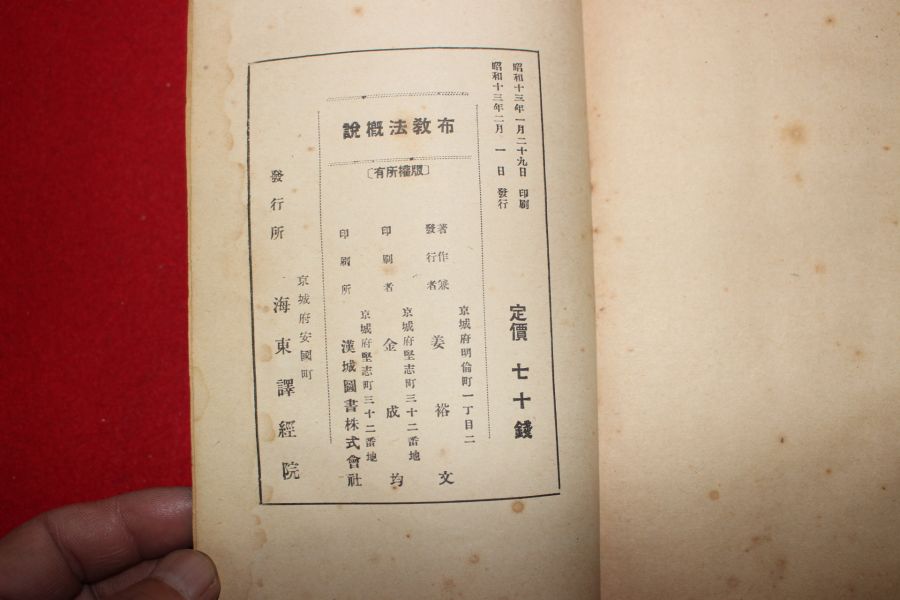 昭和十三年一月二十九日 印刷
昭和十三年二月 一 日 發行
定價 七十錢
布教法概說
〔版權所有〕
京城府明倫町一丁目二
著作兼發行者 姜裕文
京城府堅志町三十二番地
印刷者 金成均
京城府堅志町三十二番地
印刷所 漢城圖書株式會社
京城府安國町
發行所 海東譯經院